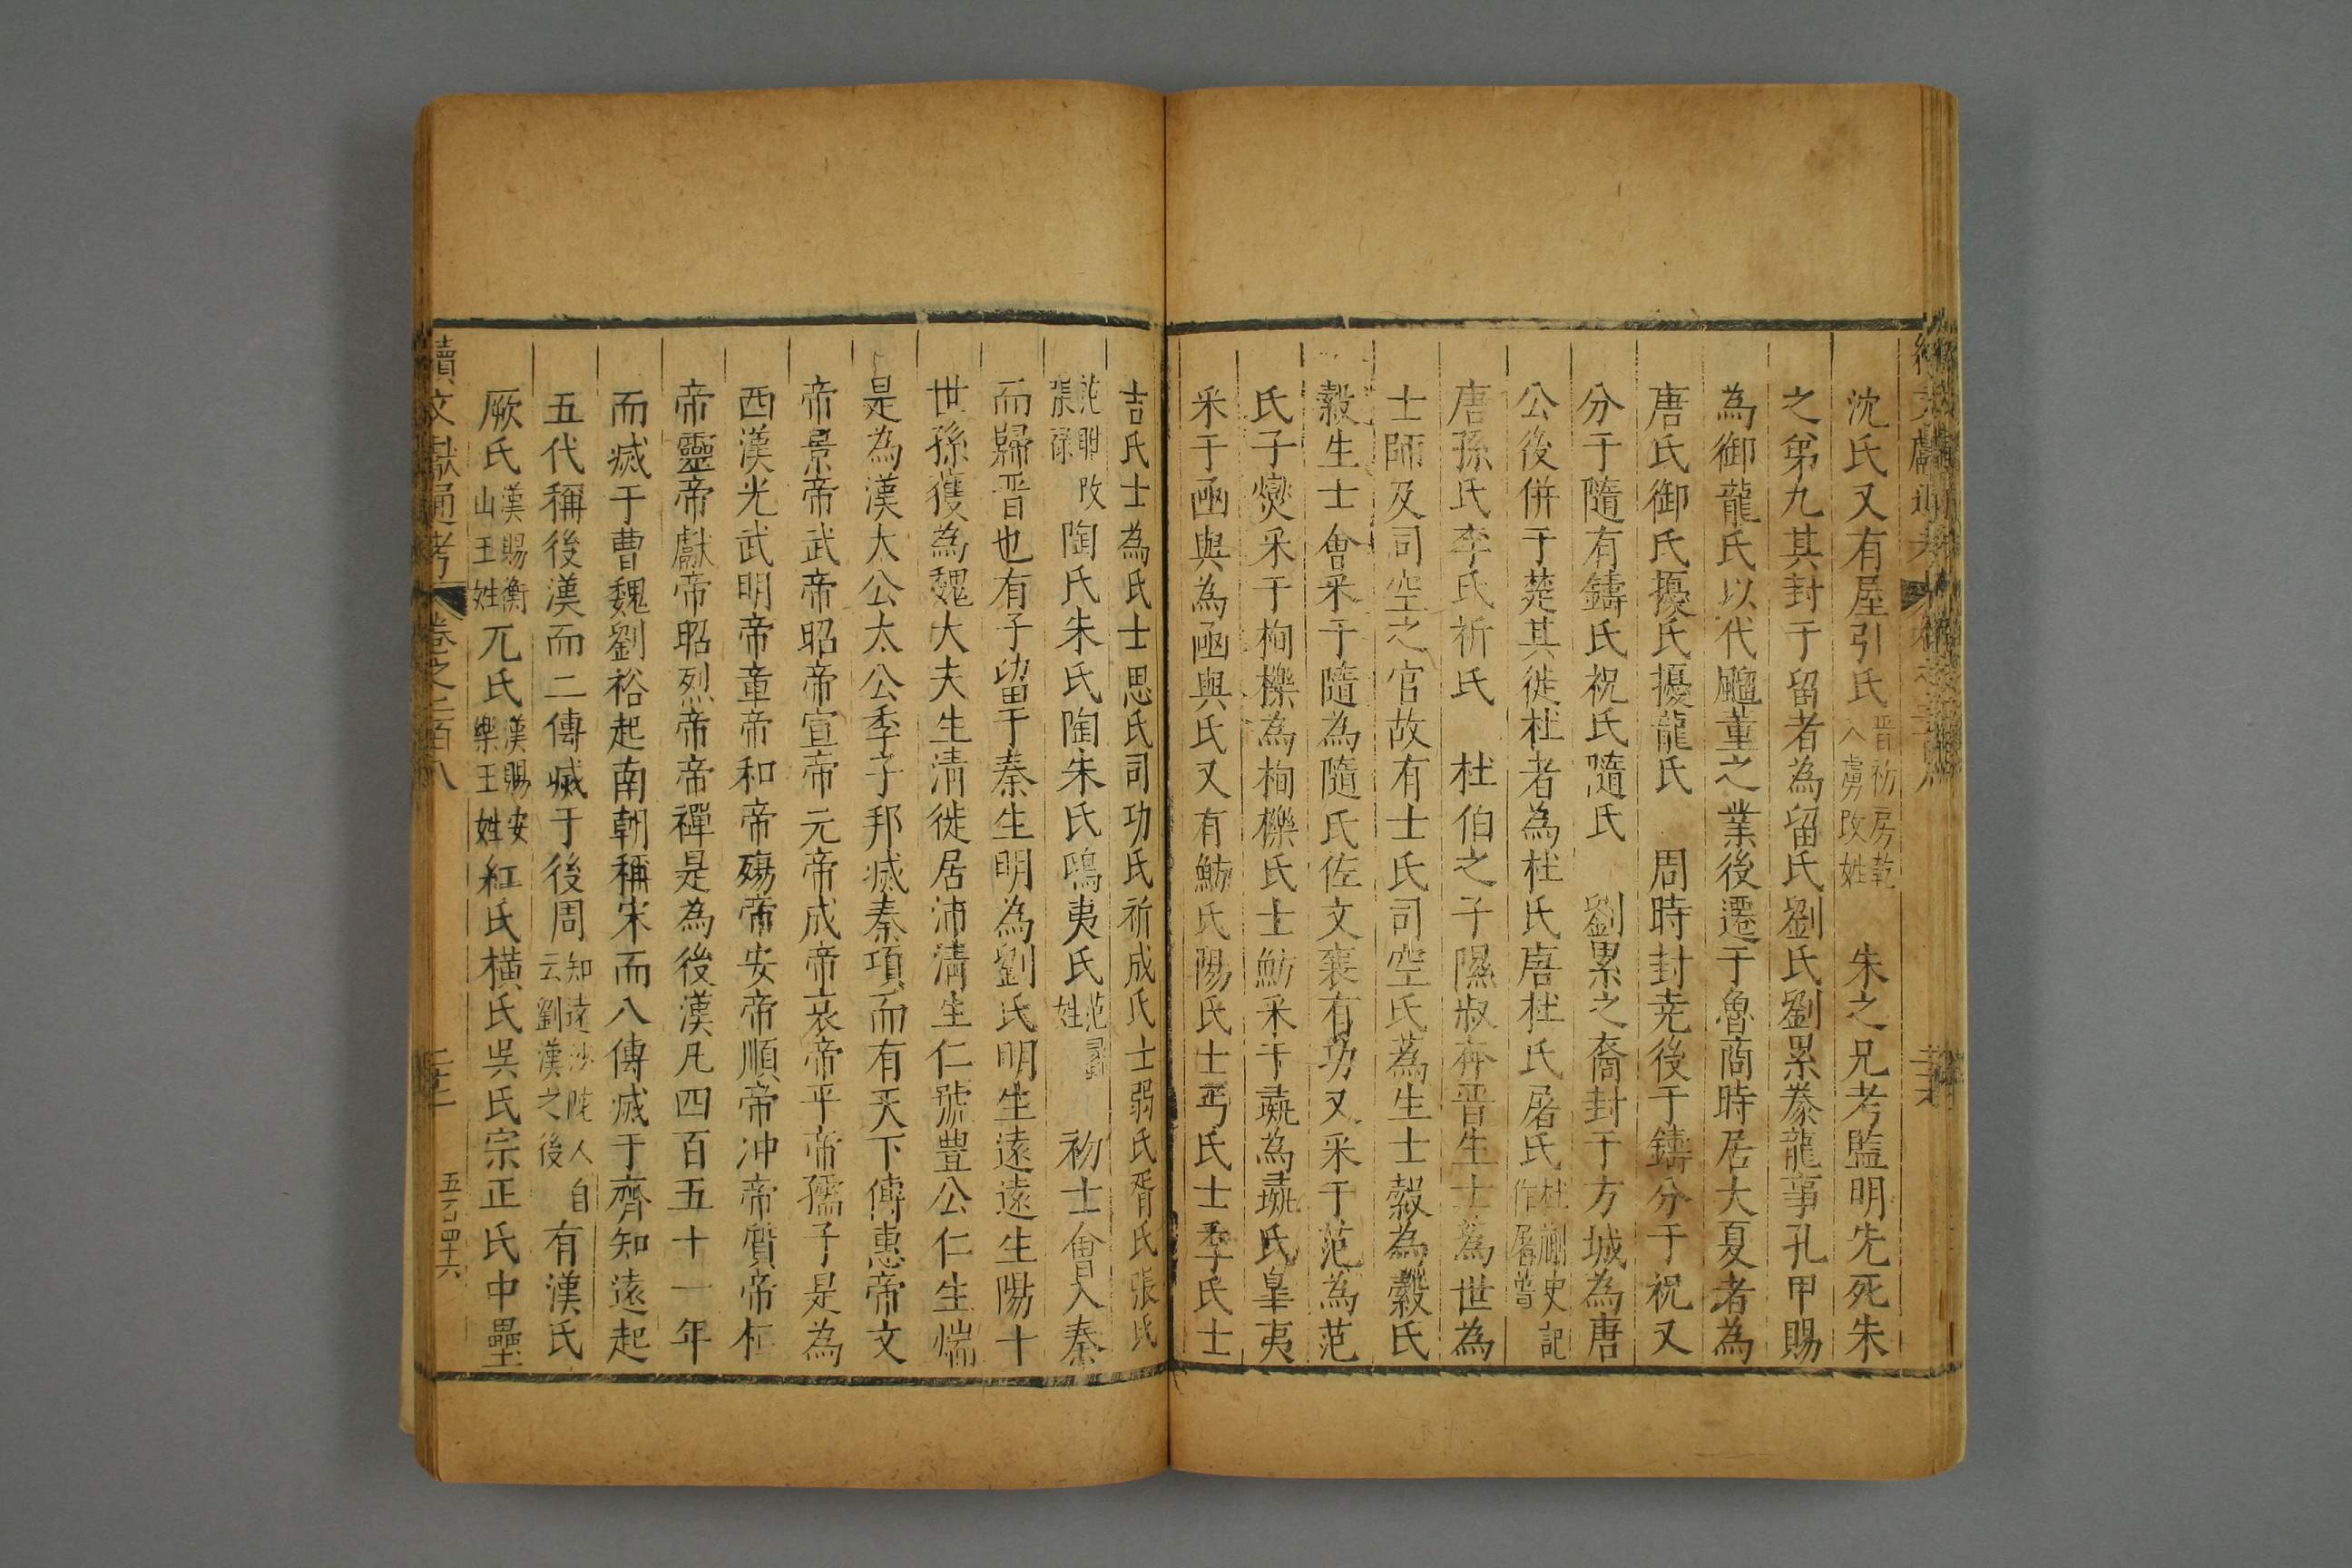 沈氏又有屋引氏晋初房乾入虜改姓　朱之兄考監明先死朱
之弟九其封于留者為留氏劉氏劉累豢龍事孔甲賜
為御龍氏以代䮾董之業後遷于魯商時居大夏者為
唐氏御氏擾氏擾龍氏　周時封尭後于鑄分于祝又
分于隨有鑄氏祝氏隨氏　劉累之裔封于方城為唐
公後併于楚其徙杜者為杜氏唐杜氏屠氏杜蒯史記作屠蒯
唐孫氏李氏祈氏　杜伯之子隰叔奔晋生士蒍世為
士師及司空之官故有士氏司空氏蒍生士縠為縠氏
縠生士會采于隨為隨氏佐文襄有功又采于范為范
氏子燮采于栒櫟為栒櫟氏士魴采于彘為彘氏皐夷
采于函與為函與氏又有魴氏陽氏士丐氏士季氏士
吉氏士為氏士思氏司功氏祈成氏士弱氏胥氏張氏
范朙改張祿陶氏朱氏陶朱氏鴟夷氏范蠡姓　初士會入秦
而歸晋也有子留于秦生明為劉氏明生遠遠生陽十
世孫獲為魏大夫生清徙居沛清生仁號豊公仁生煓
是為漢太公太公季子邦㓕秦項而有天下傳惠帝文
帝景帝武帝昭帝宣帝元帝成帝哀帝平帝孺子是為
西漢光武明帝章帝和帝殤帝安帝順帝冲帝質帝桓
帝靈帝獻帝昭烈帝帝禪是為後漢凡四百五十一年
而㓕于曹魏劉裕起南朝稱宋而八傳㓕于齊知遠起
五代稱後漢而二傳㓕于後周知遠沙陀人自云劉漢之後有漢氏
厥氏漢賜衡山王姓兀氏漢賜安樂王姓紅氏横氏吳氏宗正氏中壘
續文獻通考　卷之二百八